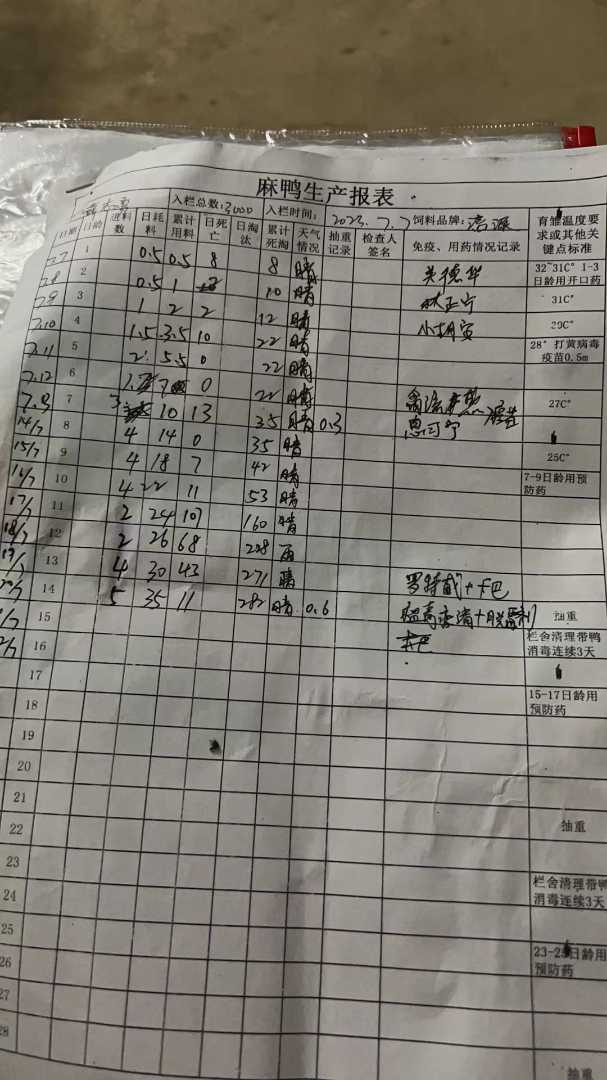 麻鸭生产报表
入栏总数：3000 入栏时间： 2023.7.7 饲料品牌：
日期 日龄 进料数 日耗料 累计用料 日死亡 日淘汰 累计死淘 天气情况 抽重记录 检查人签名 免疫、用药情况记录 育雏温度要求或其他关键点标准
7.7 1 0.5 0.5 8 8 晴 32~31C° 1-3日龄用开口药
7.8 2 0.5 1 10 晴 31C°
7.9 3 1 2 2 12 晴 29C°
7.10 4 1.5 3.5 10 22 晴 28° 打黄病毒疫苗0.5m
7.11 5 2 5.5 0 22 晴
7.12 6 0 22 晴 27C°
7 10 13 35 晴 0.3
14/7 8 4 14 0 35 晴 25C°
15/7 9 4 18 7 42 晴 7-9日龄用预防药
16/7 10 4 22 11 53 晴
17/7 11 2 24 107 160 晴
18/7 12 2 26 68 228 雨
19/7 13 4 30 43 271 晴
14 5 35 11 282 晴 0.6 抽重
15 栏舍清理带鸭消毒连续3天
16
17 15-17日龄用预防药
18
19
20
21 抽重
22
23 栏舍清理带鸭消毒连续3天
24
25 23-25日龄用预防药
26
27
28 抽重